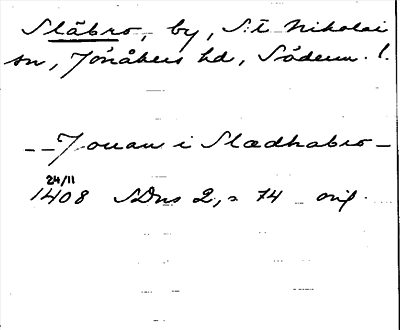 Släbro, by, S:t Nikolai
sn, Jönåkers hd, Söderm. l.
-- Jouan i Slædhabro -
24/11
1408 SDns 2, s 74 orig.